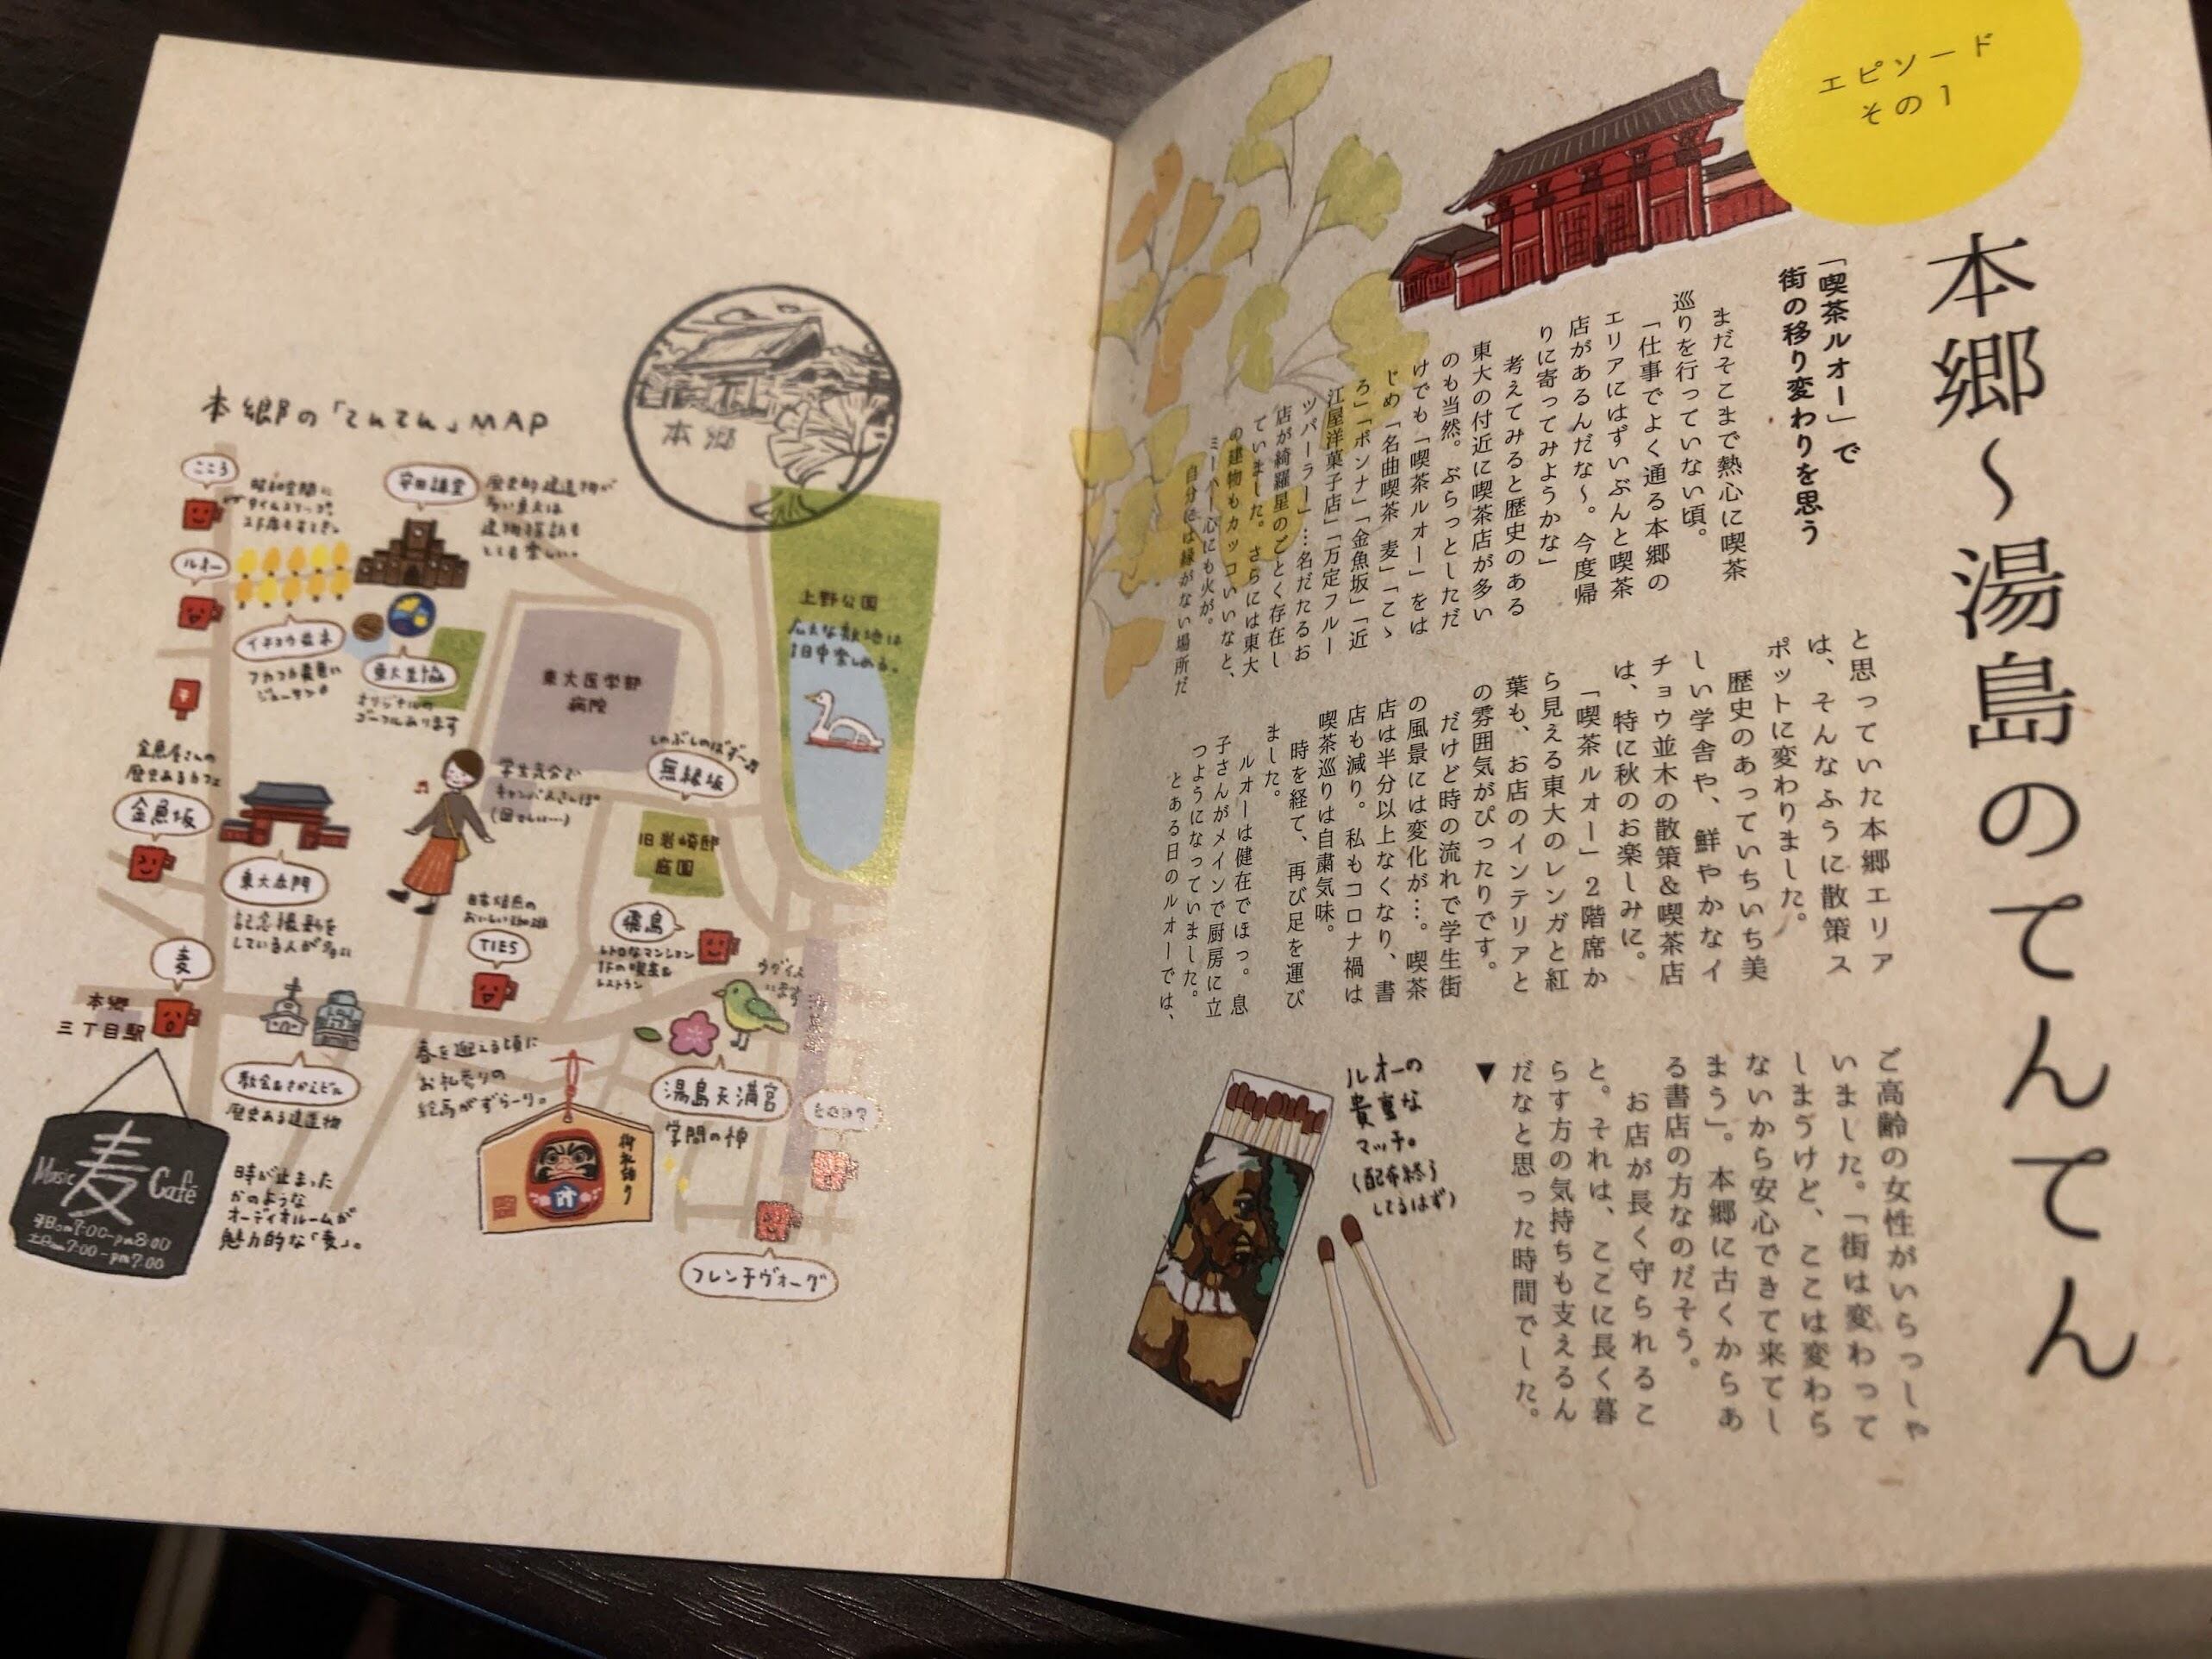 エピソード
その1
本郷～湯島のてんてん
「喫茶ルオー」で
街の移り変わりを思う
まだそこまで熱心に喫茶
巡りを行っていない頃。
「仕事でよく通る本郷の
エリアにはずいぶんと喫茶
店があるんだな～。今度帰
りに寄ってみようかな」
考えてみると歴史のある
東大の付近に喫茶店が多い
のも当然。ぶらっとしただ
けでも「喫茶ルオー」をは
じめ「名曲喫茶 麦」「こゝ
ろ」「ボンナ」「金魚坂」「近
江屋洋菓子店」「万定フルー
ツパーラー」…名だたるお
店が綺羅星のごとく存在し
ていました。さらには東大
の建物もカッコいいなと、
ミーハー心にも火が。
自分には縁がない場所だ
と思っていた本郷エリア
は、そんなふうに散策ス
ポットに変わりました。
歴史のあっていちいち美
しい学舎や、鮮やかなイ
チョウ並木の散策&喫茶店
は、特に秋のお楽しみに。
「喫茶ルオー」2階席か
ら見える東大のレンガと紅
葉も、お店のインテリアと
の雰囲気がぴったりです。
だけど時の流れで学生街
の風景には変化が…。喫茶
店は半分以上なくなり、書
店も減り。私もコロナ禍は
喫茶巡りは自粛気味。
時を経て、再び足を運び
ました。
ルオーは健在でほっ。息
子さんがメインで厨房に立
つようになっていました。
とある日のルオーでは、
ご高齢の女性がいらっしゃ
いました。「街は変わって
しまうけど、ここは変わら
ないから安心できて来てし
まう」。本郷に古くからあ
る書店の方なのだそう。
お店が長く守られるこ
と。それは、ここに長く暮
らす方の気持ちも支えるん
だなと思った時間でした。
▼
ルオーの
貴重な
マッチ。
(配布終了
してるはず)
本郷の「てんてん」MAP
本郷
こころ
昭和空間に
タイムスリップ。
2F席もすてき。
安田講堂
歴史的建造物が
多い東大は
建物探訪も
とても楽しい。
ルオー
イチョウ並木
東大生協
オリジナルの
ゴーフルあります
上野公園
広大な敷地は
1日中楽しめる。
東大医学部
病院
金魚屋さんの
歴史あるカフェ
金魚坂
学生気分で
キャンパスさんぽ
しのぶしのばず～♬
無縁坂
旧岩崎邸
庭園
東大赤門
記念撮影を
している人が多い
日本焙煎の
おいしい珈琲
TIES
飛鳥
レトロなマンション
1Fの喫茶&
レストラン
麦
本郷
三丁目駅
教会&さかえビル
歴史ある建造物
春を迎える頃に
お礼参りの
絵馬がずらーり。
湯島天満宮
学問の神
御礼詣り
フレンチヴォーグ
麦
Music Café
平日am7:00-pm8:00
土日am7:00-pm7:00
時が止まった
かのような
オーディオルームが
魅力的な「麦」。